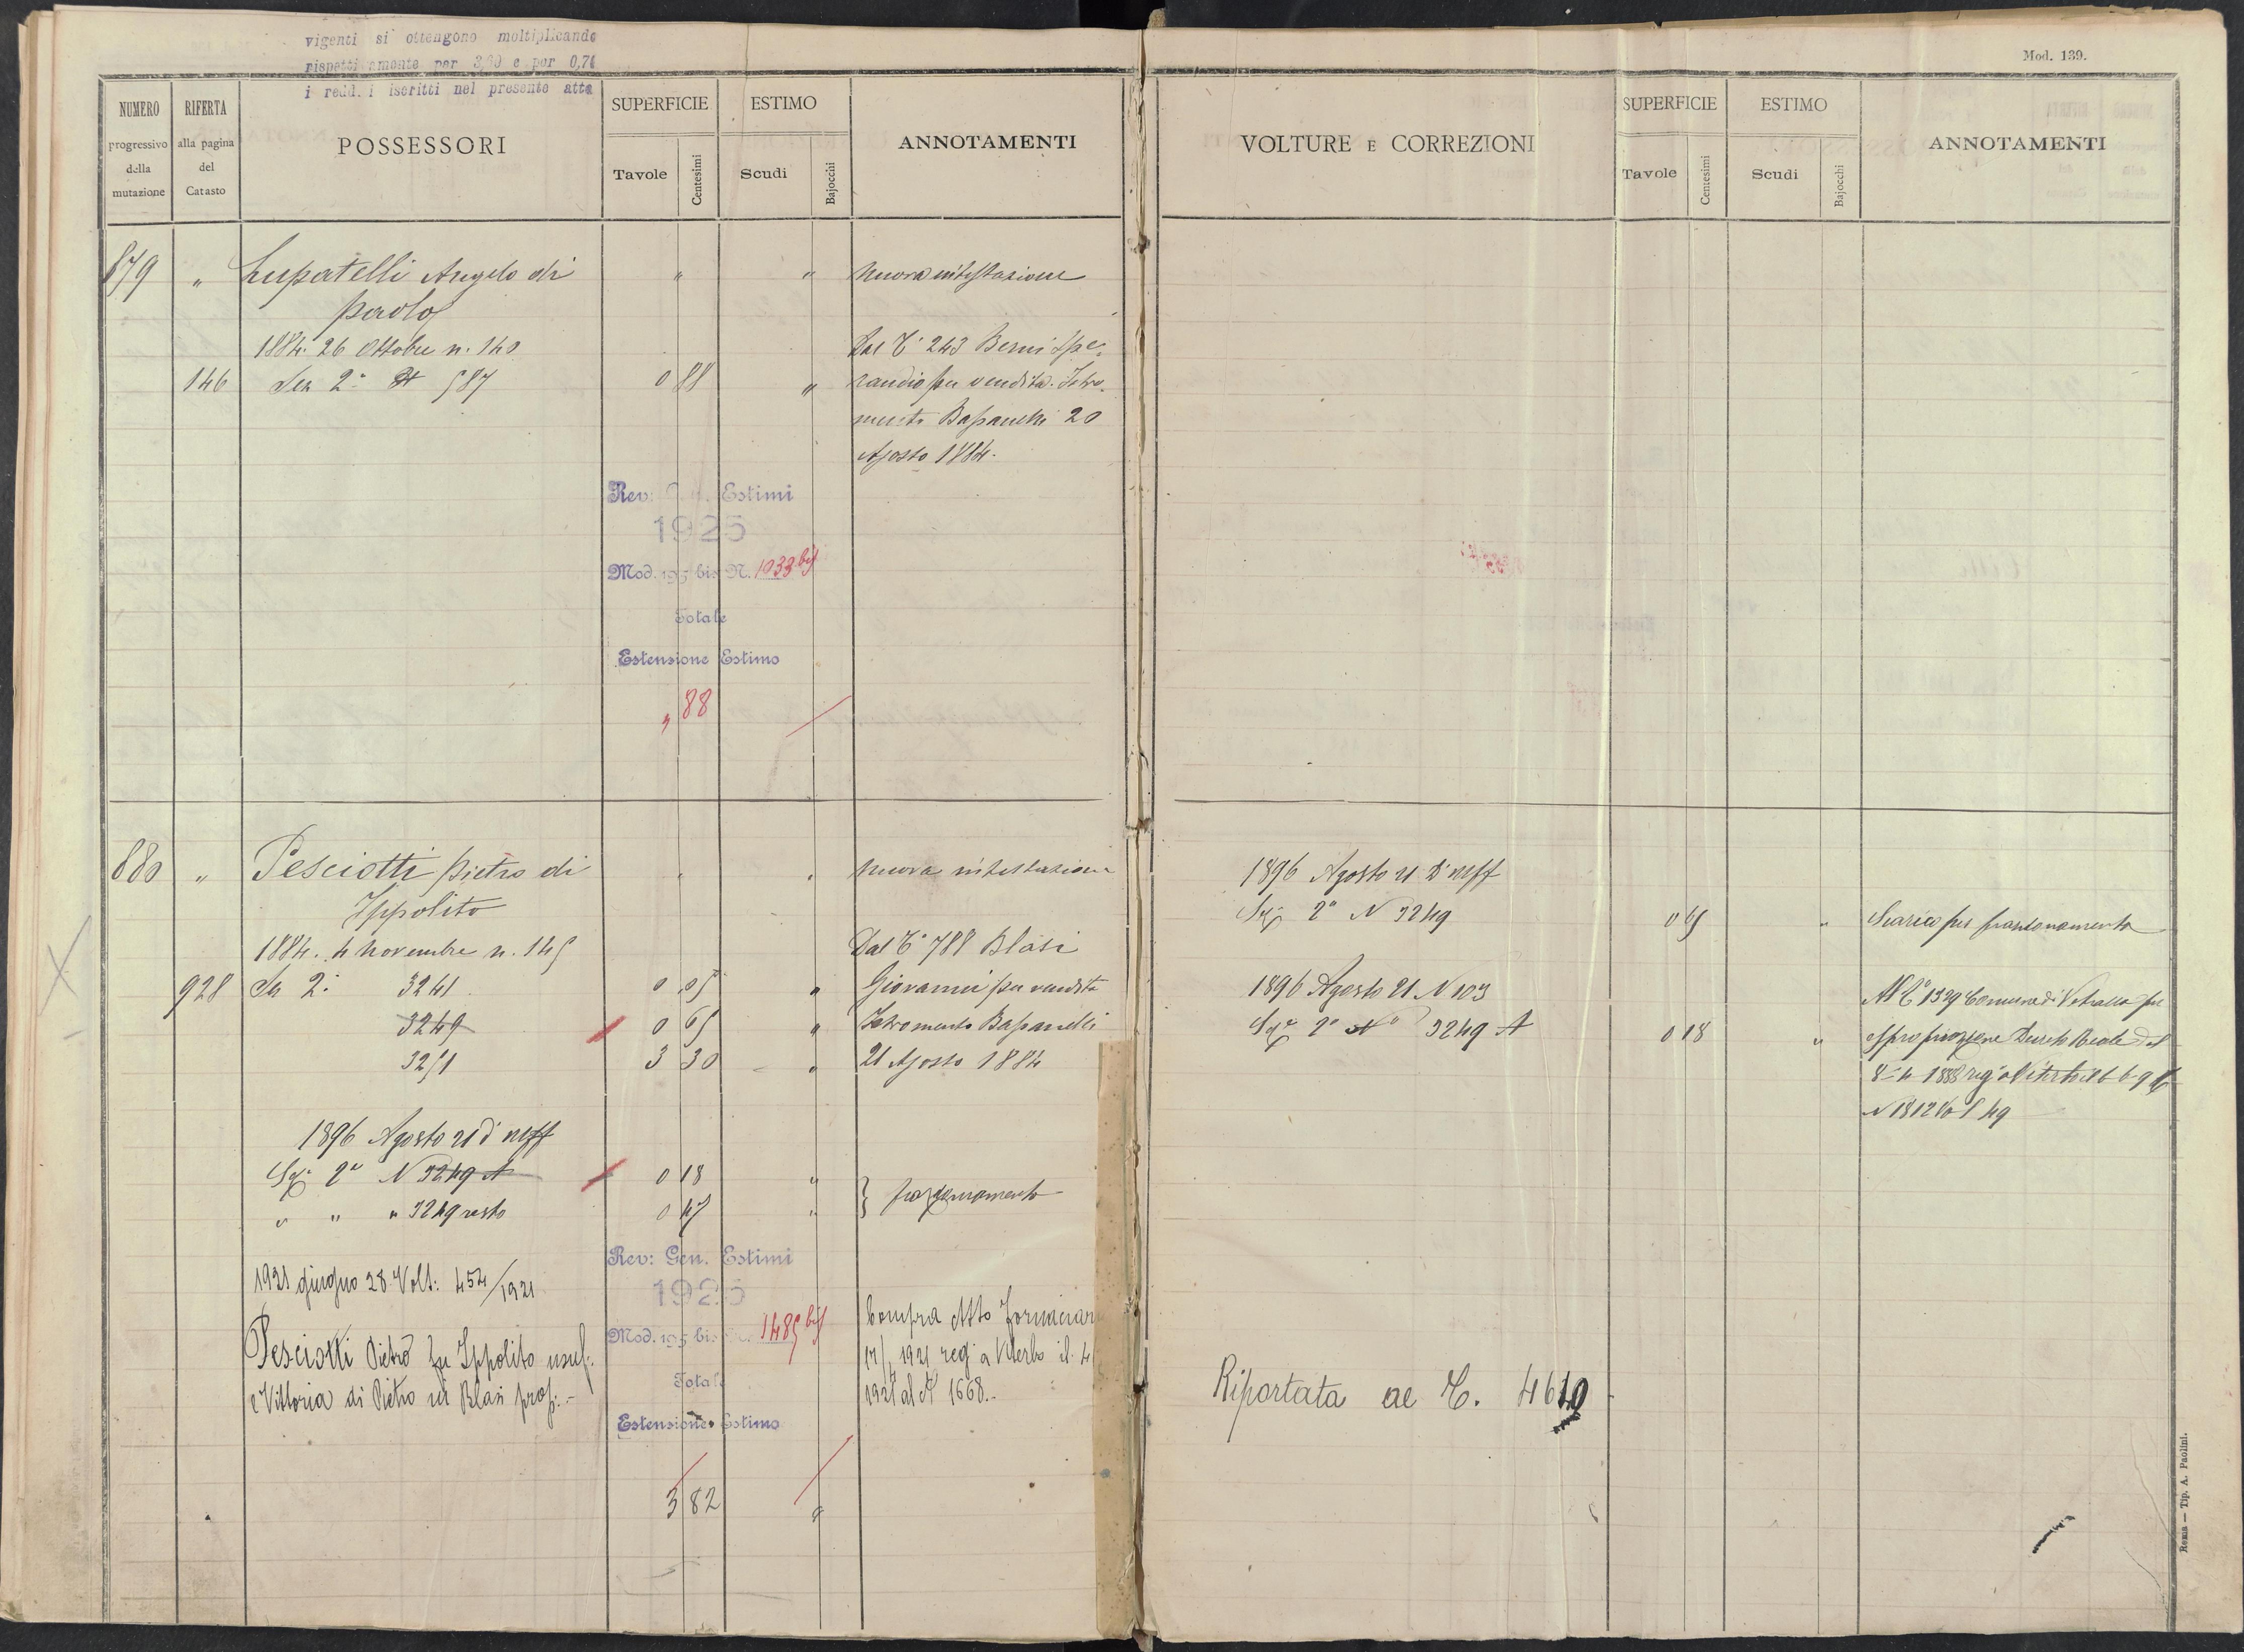 vigenti si ottengono moltiplicando
rispettivamente per 3,00 e per 0,74
i redd. i iscritti nel presente atto
Mod. 139.
NUMERO progressivo della mutazione
RIFERTA alla pagina del Catasto
POSSESSORI
SUPERFICIE
Tavole
Centesimi
ESTIMO
Scudi
Bajocchi
ANNOTAMENTI
VOLTURE E CORREZIONI
SUPERFICIE
Tavole
Centesimi
ESTIMO
Scudi
Bajocchi
ANNOTAMENTI
879 " Lupatelli Angelo di " " Nuova intestazione
Paolo
1884. 26 Ottobre n. 140 Dal C° 243 Berni Spe-
146 Sez 2ª N 587 0 88 " randio per vendita. Istro-
mento Bassanelli 20
Agosto 1884.
Rev: Estimi
1925
Mod. 195 bis N. 1033 bis
Totale
Estensione Estimo
" 88
880 " Pesciotti Pietro di " " nuova intestazione
Ippolito
1884. 4 novembre n. 145 Dal C° 788 Blasi
928 Sez 2ª 3241 0 05 " Giovanni per vendita
3249 0 65 " Istromento Bassanelli
3251 3 30 " 21 Agosto 1884
1896 Agosto 21 d'uff
Sez 2ª N 3249 A 0 18 "
" " " 3249 resto 0 47 " } frazionamento
Rev: Gen. Estimi
1925
1921 giugno 28 Volt: 454/1921
Mod. 195 bis N. 1485 bis
Compra Atto Fornaciar
Pesciotti Pietro fu Ippolito usuf:
1921 reg. a Viterbo il 4
e Vittoria di Pietro in Blasi prop: -
1921 al N 1668.-
Totale
Estensione Estimo
3 82 "
1896 Agosto 21 D'uff
Sez 2ª N 3249 0 65 " Scarico per frazionamento
1896 Agosto 21 N 103 Al C° 1329 Comune di Vetralla per
Sez 2ª N° 3249 A 0 18 " espropriazione Decreto Reale del
8-4-1888 reg° a Viterbo il 6-6-96
N 1812 Vol 49
Riportata al C. 4610
Roma — Tip. A. Paolini.